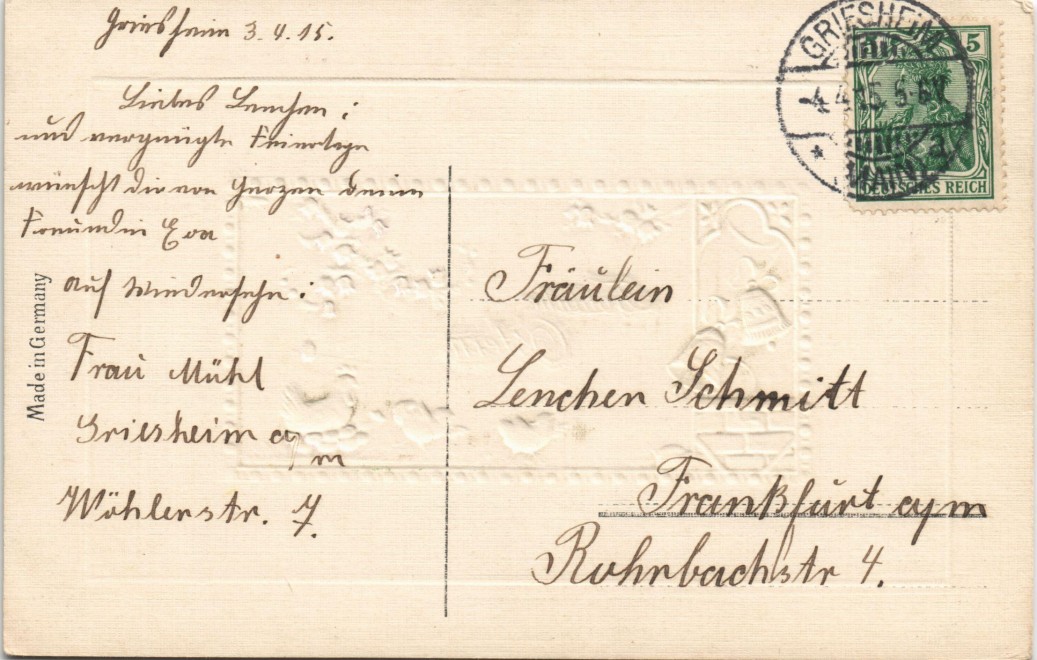 Griesheim 3.4.15.
Liebes Lenchen!
und vergnügte Feiertage
wünscht dir von Herzen deine
Freundin Eva
auf Wiedersehn!
Frau Mühl
Griesheim a/m
Wöhlerstr. 7.
Made in Germany
GRIESHEIM
4.4.15. 5-6N.
(MAIN)
5
DEUTSCHES REICH
Fräulein
Lenchen Schmitt
Frankfurt a/m
Rohrbachstr 4.